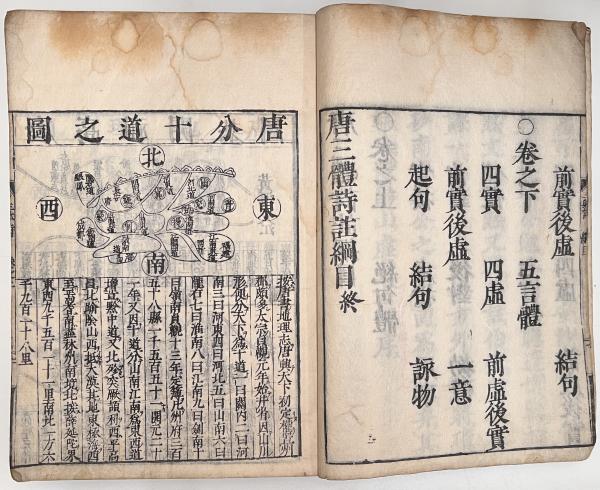 前實後虛 結句
○卷之下 五言體
四實 四虛 前虛後實
前實後虛 一意
起句 結句 詠物
唐三體詩註綱目終
唐分十道之圖
北
東
西
南
按唐書地理志唐興天下初定權置州
郡頗多太宗貞觀元年始并省因山川
形便分天下為十道一曰關內二曰河
南三曰河東四曰河北五曰山南六曰
隴右七曰淮南八曰江南九曰劍南十
曰嶺南貞觀十三年定簿凡州府三百
五十八縣一千五百五十一開元二十
一年又因十道分山南江南為東西道
增置黔中道又北殄突厥頡利西平高
昌北踰陰山西抵大漠其地東極海西
至焉耆南盡林州南境北接薛延陀界
東西九千五百一十一里南北一万六
千九百一十八里